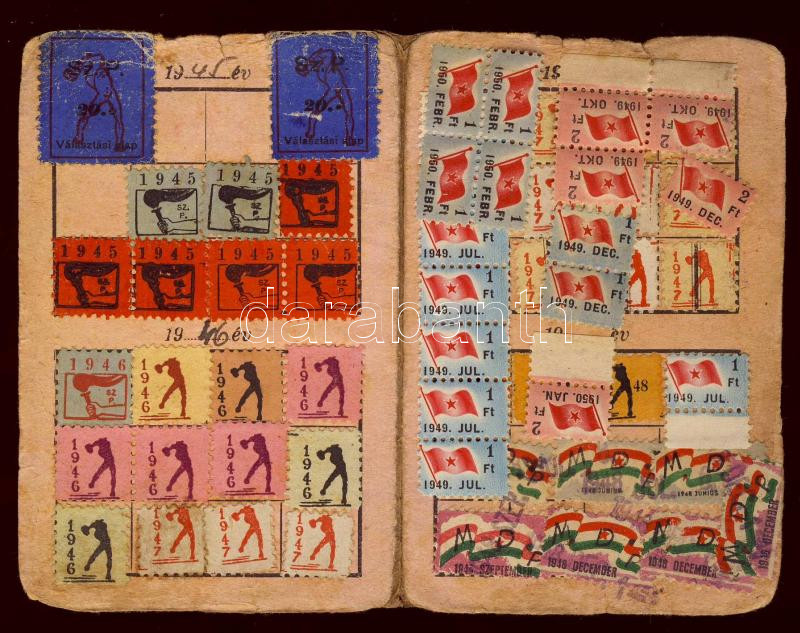 19 45 év
SZ.P.
20.-
Választási alap
SZ.P.
20.-
Választási alap
1945
SZ.
P.
1945
SZ.
P.
1945
1945
SZ.
P.
1945
1945
1945
19 46 év
1946
SZ.
P.
1946
1946
1946
1946
1946
1946
1946
1946
1946
1947
1947
1947
19
1950. FEBR.
1 Ft
1950. FEBR.
1 Ft
1950. FEBR.
1 Ft
1950. FEBR.
1 Ft
1947
1949. OKT.
2 Ft
1949. OKT.
2 Ft
1949. OKT.
2 Ft
2 Ft
1949. DEC.
1947
1 Ft
1949. DEC.
1 Ft
1949. DEC.
1947
1947
1947
1 Ft
1949. JUL.
1 Ft
1949. JUL.
1 Ft
1949. JUL.
1 Ft
1949. JUL.
1 Ft
1949. JUL.
19 év
48
1 Ft
1949. JUL.
1950. JAN.
2 Ft
MDP
MDP
1948 JUNIUS
MDP
1948 SZEPTEMBER
MDP
1948 DECEMBER
MDP
1948 DECEMBER
MDP
1948 DECEMBER
darabanth